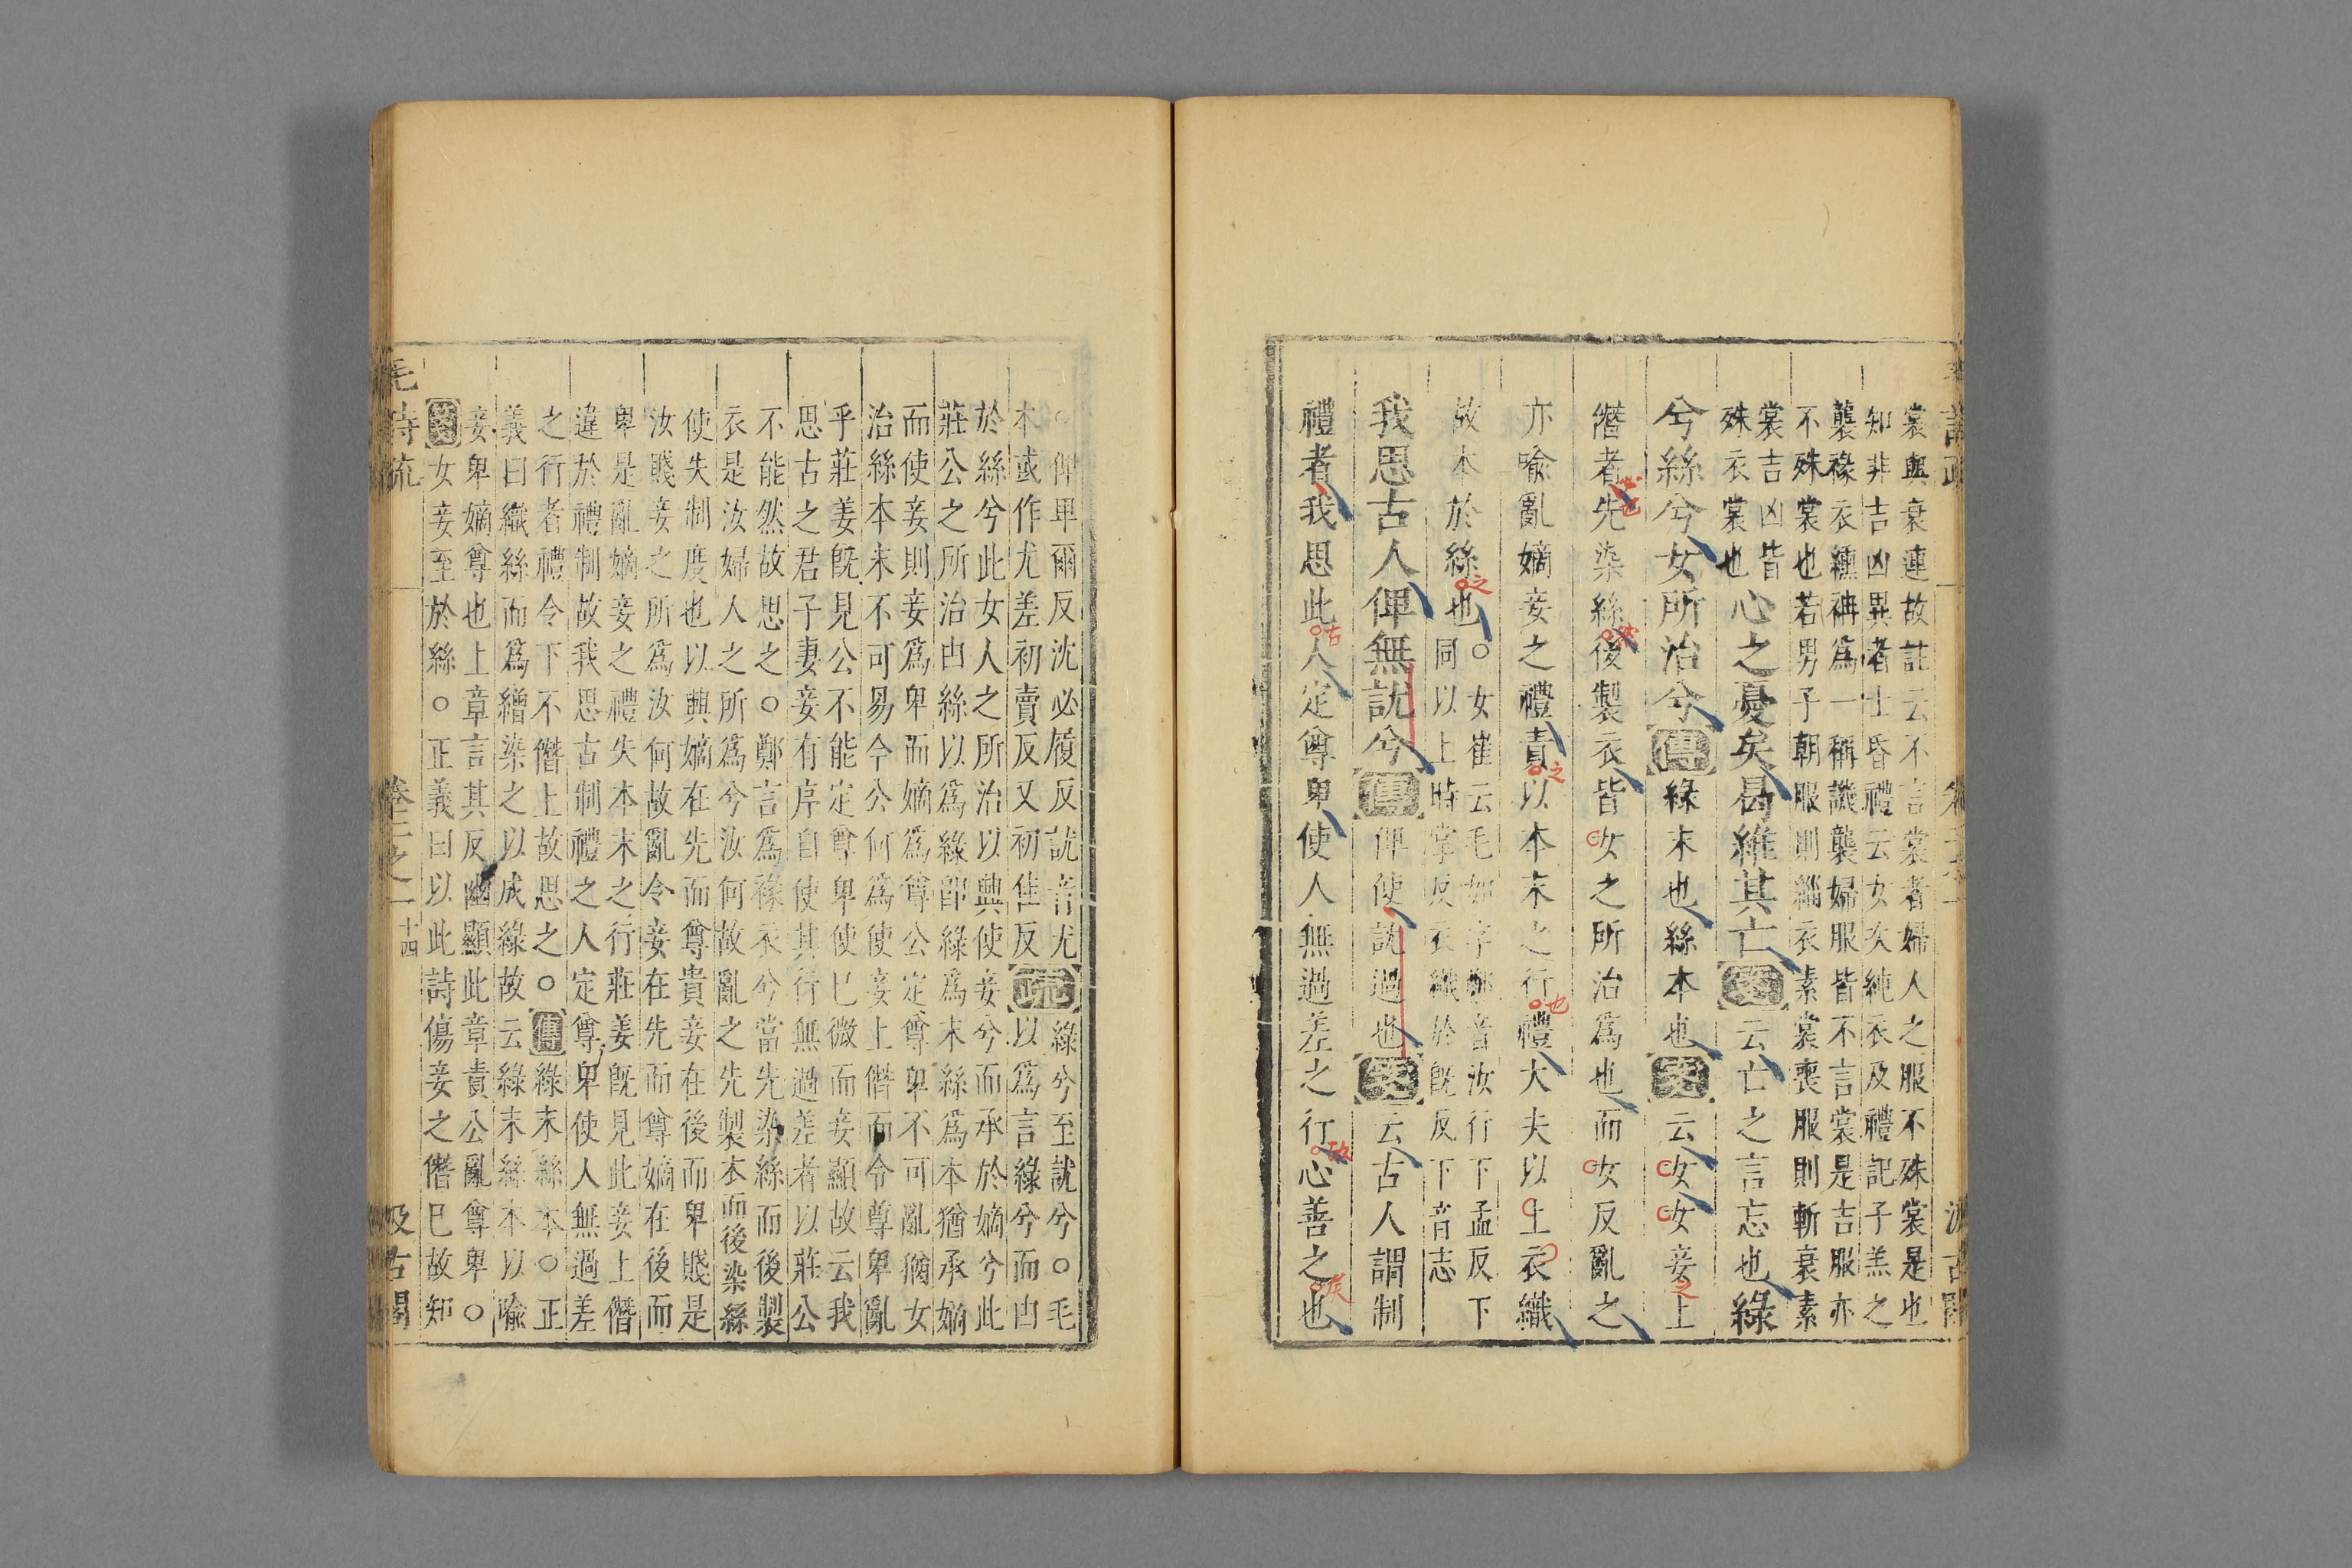 裳與衰連故註云不言裳者婦人之服不殊裳是也
知非吉凶異者士昏禮云女次純衣及禮記子羔之
襲褖衣纁袡爲一稱譏襲婦服皆不言裳是吉服亦
不殊裳也若男子朝服則緇衣素裳喪服則斬衰素
裳吉凶皆
殊衣裳也
心之憂矣曷維其亡箋云亡之言忘也綠
兮絲兮女所治兮傳綠末也絲本也箋云女女妾上
僭者先染絲後製衣皆女之所治爲也而女反亂之
亦喩亂嫡妾之禮責以本末之行禮大夫以上衣織
故本於絲也○女崔云毛如字鄭音汝行下孟反下
同以上時掌反衣織於旣反下音志
我思古人俾無訧兮傳俾使訧過也箋云古人謂制
禮者我思此人定尊卑使人無過差之行心善之也
○俾卑爾反沈必履反訧音尤
本或作尤差初賣反又初佳反
疏綠兮至訧兮○毛
以爲言綠兮而由
於絲兮此女人之所治以興使妾兮而承於嫡兮此
莊公之所治由絲以爲綠卽綠爲末絲爲本猶承嫡
而使妾則妾爲卑而嫡爲尊公定尊卑不可亂猶女
治絲本末不可易今公何爲使妾上僭而令尊卑亂
乎莊姜旣見公不能定尊卑使已微而妾顯故云我
思古之君子妻妾有序自使其行無過差者以莊公
不能然故思之○鄭言爲褖衣兮當先染絲而後製
衣是汝婦人之所爲兮汝何故亂之先製衣而後染絲
使失制度也以興嫡在先而尊貴妾在後而卑賤是
汝賤妾之所爲汝何故亂令妾在先而尊嫡在後而
卑是亂嫡妾之禮失本末之行莊姜旣見此妾上僭
違於禮制故我思古制禮之人定尊卑使人無過差
之行者禮令下不僭上故思之○傳綠末絲本○正
義曰織絲而爲繒染之以成綠故云綠末絲本以喩
妾卑嫡尊也上章言其反幽顯此章責公亂尊卑○
箋女妾至於絲○正義曰以此詩傷妾之僭已故知
毛詩疏 卷二之一 十四 汲古閣